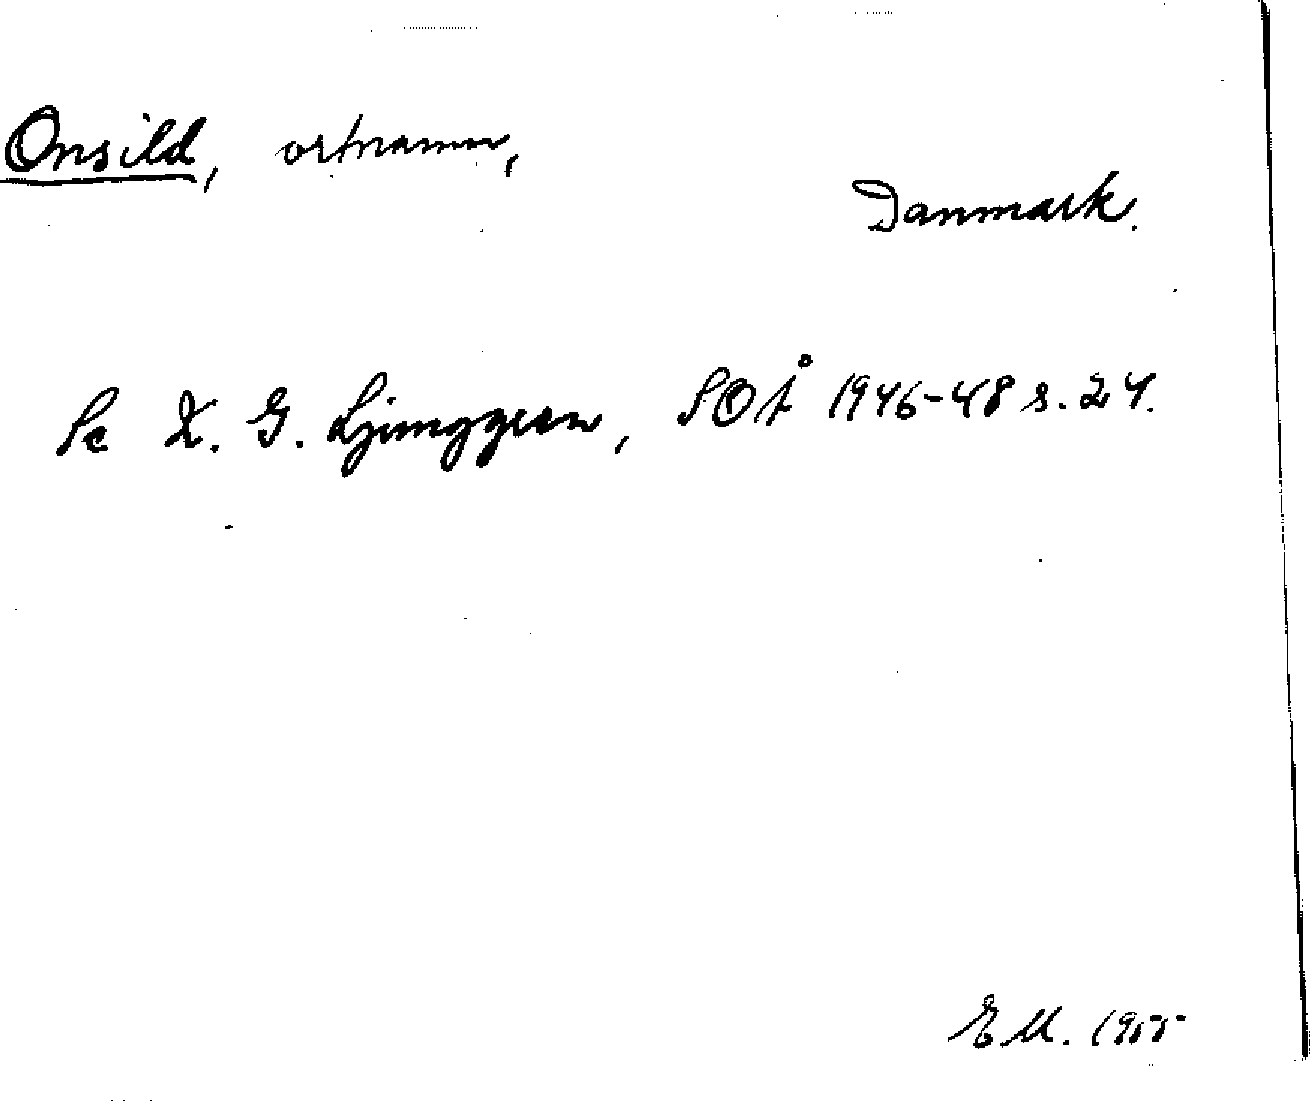 Onsild, ortnamn,
Danmark.
Se K. G. Ljunggren, SOÅ 1946-48 s. 24.
E M. 1955